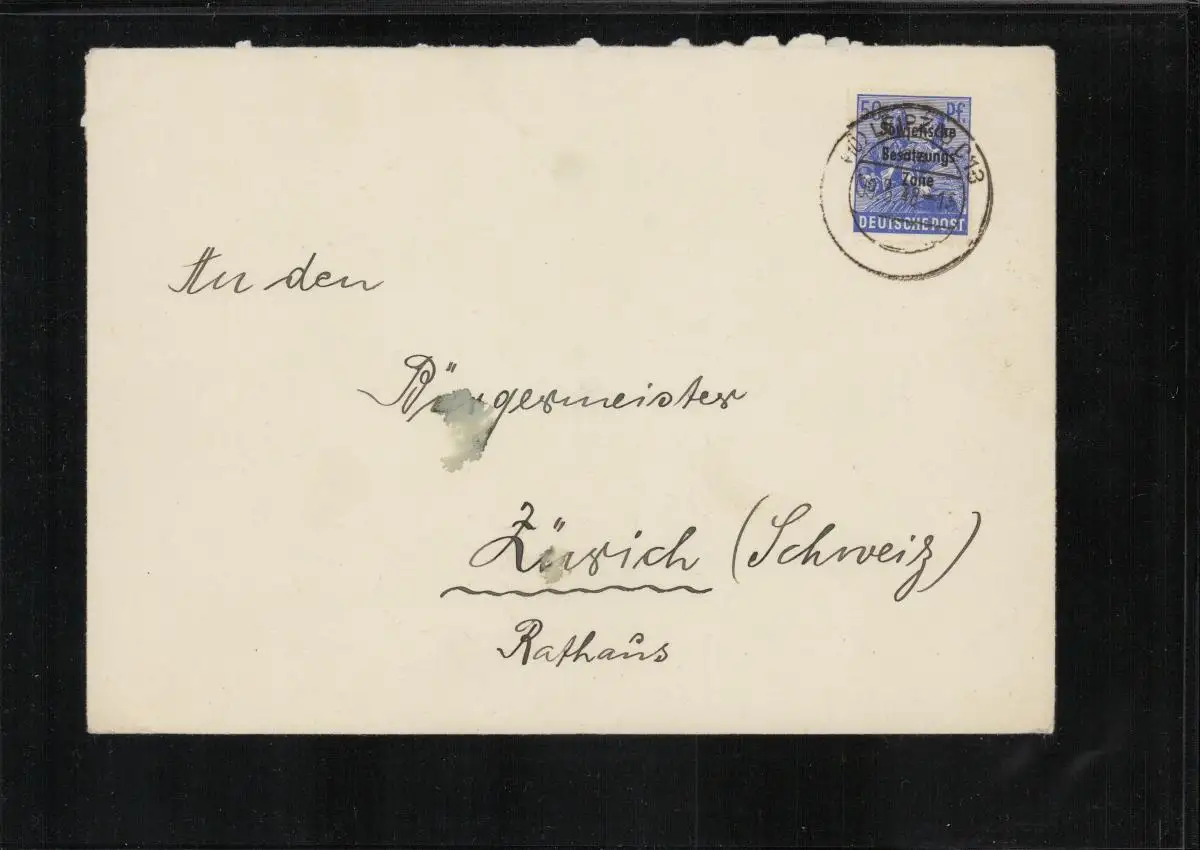 50 Pf.
Sowjetische
Besatzungs
Zone
DEUTSCHE POST
(10) LEIPZIG C 13
An den
Bürgermeister
Zürich (Schweiz)
Rathaus